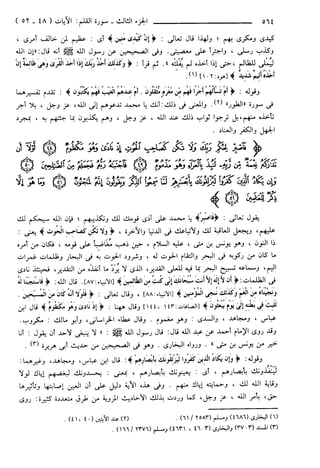 ٥٦٤ الجزء الثالث - سورة القلم: الآيات (٤٨ - ٥٢)
كيدي ومكري بهم ؛ ولهذا قال تعالى : ﴿ إن كيدي متين ﴾ أي : عظيم لمن خالف أمري ،
وكذب رسلي ، واجترأ على معصيتي. وفي الصحيحين عن رسول الله ﷺ أنه قال: «إن الله
ليُملي للظالم ، حتى إذا أخذه لم يُفلته » . ثم قرأ : ﴿ وكذلك أخذ ربك إذا أخذ القرى وهي ظالمة إن
أخذه أليم شديد ﴾ [هود: ١٠٢] (١).
وقوله : ﴿ أم تسألهم أجرا فهم من مغرم مثقلون . أم عندهم الغيب فهم يكتبون ﴾ : تقدم تفسيرهما
في سورة «الطور» (٢). والمعنى في ذلك: أنك يا محمد تدعوهم إلى الله، عز وجل ، بلا أجر
تأخذه منهم، بل ترجوا ثواب ذلك عند الله ، عز وجل ، وهم يكذبون بما جئتهم به ، بمجرد
الجهل والكفر والعناد .
﴿ فاصبر لحكم ربك ولا تكن كصاحب الحوت إذ نادى وهو مكظوم ﴿٤٨﴾ لولا أن
تداركه نعمة من ربه لنبذ بالعراء وهو مذموم ﴿٤٩﴾ فاجتباه ربه فجعله من الصالحين ﴿٥٠﴾
وإن يكاد الذين كفروا ليزلقونك بأبصارهم لما سمعوا الذكر ويقولون إنه لمجنون ﴿٥١﴾ وما هو إلا
ذكر للعالمين ﴿٥٢﴾
يقول تعالى : ﴿ فاصبر ﴾ يا محمد على أذى قومك لك وتكذيبهم ؛ فإن الله سيحكم لك
عليهم، ويجعل العاقبة لك ولأتباعك في الدنيا والآخرة ، ﴿ ولا تكن كصاحب الحوت ﴾ يعني :
ذا النون ، وهو يونس بن متى ، عليه السلام ، حين ذهب مُغاضبا على قومه ، فكان من أمره
ما كان من ركوبه في البحر والتقام الحوت له ، وشرود الحوت به في البحار وظلمات غمرات
اليم ، وسماعه تسبيح البحر بما فيه للعلي القدير، الذي لا يُردّ ما أنفذه من التقدير، فحينئذ نادى
في الظلمات: ﴿ أن لا إله إلا أنت سبحانك إني كنت من الظالمين ﴾ [الأنبياء: ٨٧]. قال الله: ﴿ فاستجبنا له
ونجيناه من الغم وكذلك ننجي المؤمنين ﴾ [الأنبياء: ٨٨] ، وقال تعالى : ﴿ فلولا أنه كان من المسبحين .
للبث في بطنه إلى يوم يبعثون ﴾ [الصافات: ١٤٣، ١٤٤] وقال ههنا : ﴿ إذ نادى وهو مكظوم ﴾ قال ابن
عباس ، ومجاهد ، والسدي : وهو مغموم . وقال عطاء الخراساني، وأبو مالك : مكروب .
وقد روى الإمام أحمد عن عبد الله قال: قال رسول الله ﷺ : « لا ينبغي لأحد أن يقول : أنا
خير من يونس بن متى » . ورواه البخاري . وهو في الصحيحين من حديث أبي هريرة (٣) .
وقوله : ﴿ وإن يكاد الذين كفروا ليزلقونك بأبصارهم ﴾ : قال ابن عباس، ومجاهد، وغيرهما:
ليُنفذونك بأبصارهم ، أي : يعينونك بأبصارهم ، بمعنى : يحسدونك لبغضهم إياك لولا
وقاية الله لك ، وحمايته إياك منهم . وفي هذه الآية دليل على أن العين إصابتها وتأثيرها
حق، بأمر الله ، عز وجل، كما وردت بذلك الأحاديث المروية من طرق متعددة كثيرة: روى
(١) البخاري (٤٦٨٦) ومسلم (٢٥٨٣ / ٦١). (٢) عند الآيتين (٤٠ ، ٤١) .
(٣) المسند (٣٧٠٣) والبخاري (٤٦٠٣ ، ٤٦٣١) ومسلم (٢٣٧٦ / ١٦٦) .